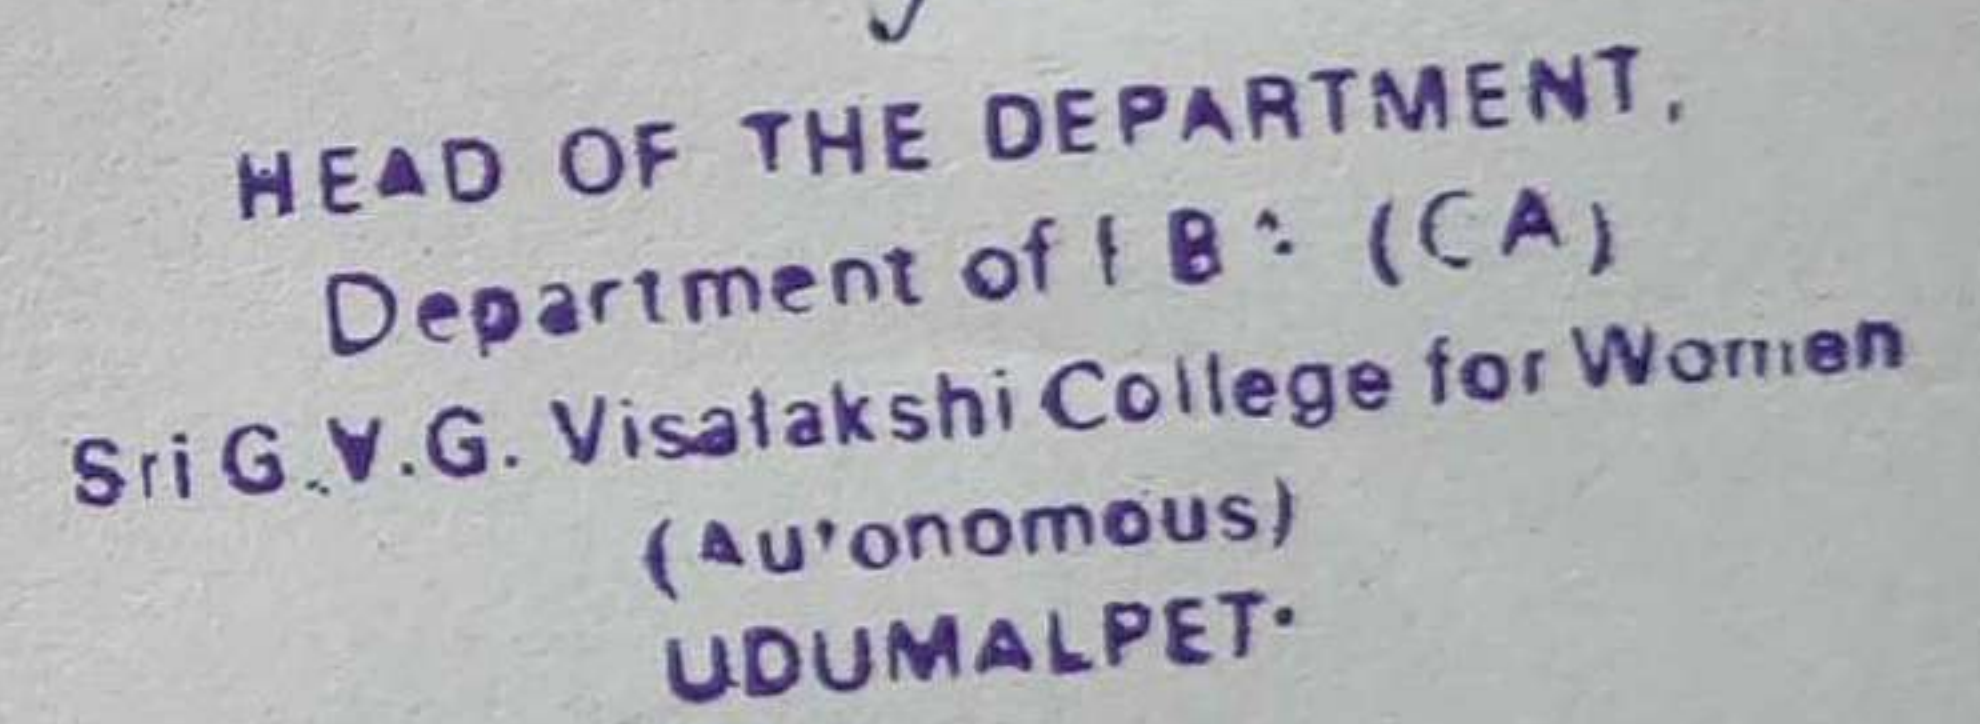 HEAD OF THE DEPARTMENT,
Department of (CA)
Sri G.V.G. Visalakshi College for Women
(Autonomous)
UDUMALPET.